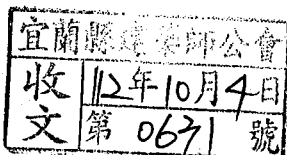 宜蘭縣建築師公會
收文
112年10月4日
第 0631 號